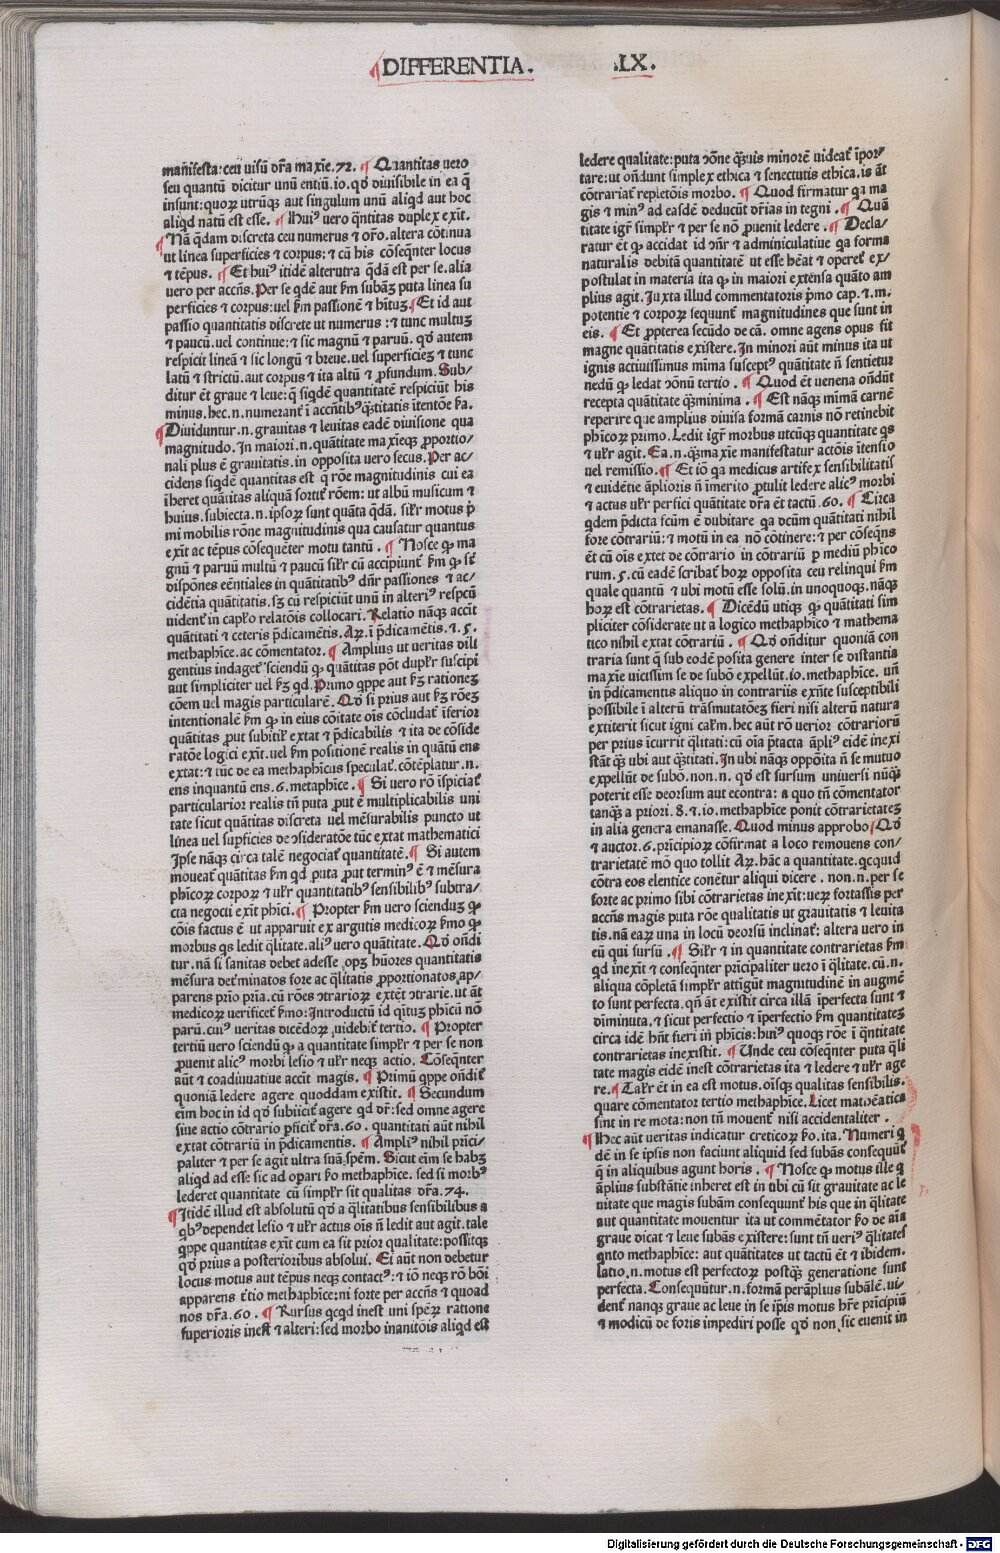 ¶DIFFERENTIA. .LX.
mañifesta:ceu uisũ dr̃a maxīe.72. ¶ Quantitas uero
seu quantũ dicitur unũ entiũ.io.qď diuisibile in ea q̃
insunt:quoꝝ utrũqꝫ aut singulum unũ aliqd aut hoc
aliqd natũ est esse. ¶ Huiꝰ uero q̃ntitas duplex exīt.
¶ Nã q̃dam discreta ceu numerus ⁊ or̃o.altera cõtinua
ut linea superficies ⁊ corpus:⁊ cũ his cõseq̃nter locus
⁊ tẽpus. ¶ Et huiꝰ itidẽ alterutra q̃dã est per se.alia
uero per accñs.Per se qdẽ aut ẜm subãꝫ puta linea su
perficies ⁊ corpus:uel ẜm passionẽ ⁊ hĩtuꝫ.¶ Et id aut
passio quantitatis discrete ut numerus :⁊ tunc multuꝫ
⁊ paucũ.uel continue:⁊ sic magnũ ⁊ paruũ. qď autem
respicit lineã ⁊ sic longũ ⁊ breue.uel superficieꝫ ⁊ tunc
latũ ⁊ strictũ.aut corpus ⁊ ita altũ ⁊ ꝓfundum. Sub/
ditur ẽt graue ⁊ leue:q̃ siqdẽ quantitatẽ respiciũt his
minus.hec.n.numerant̃ ĩ accñtibꝰ q̃titatis itentõe ẜa.
¶ Diuiduntur.n.grauitas ⁊ leuitas eadẽ diuisione qua
magnitudo.In maiori.n.quãtitate maxieqꝫ ꝓportio/
nali plus ẽ grauitatis.in opposita uero secus.Per ac/
cidens siqdẽ quantitas est q̃ rõe magnitudinis cui ea
ĩheret quãtitas aliquã sortit̃ rõem: ut albũ musicum ⁊
huius.subiecta.n.ipsoꝝ sunt quãta q̃dã. sil̃r motus p̃
mi mobilis rõne magnitudinis qua causatur quantus
exīt ac tẽpus cõseq̃ter motu tantũ . ¶ Nosce ꝙ ma
gnũ ⁊ paruũ multũ ⁊ paucũ sil̃r cũ accipiunt̃ ẜm ꝙ sẽ
dispõnes eẽntiales in quãtitatibꝰ dñr passiones ⁊ ac/
cidẽtia quãtitatis.sꝫ cũ respiciũt unũ in alteriꝰ respcũ
uident̃ in cap̃lo relatõis collocari. Relatio nãqꝫ accĩt
quãtitati ⁊ ceteris p̃dicamẽtis.Aꝝ.ĩ p̃dicamẽtis.⁊.5.
methaph̃ice.ac cõmentator.¶ Amplius ut ueritas dili
gentius indaget̃ sciendũ ꝙ quãtitas põt dupl̃r suscipi
aut simpliciter uel ẜꝫ qd.Primo q̃ppe aut ẜꝫ rationeꝫ
cõem uel magis particularẽ. Qď si prius aut ẜꝫ rõeꝫ
intentionalẽ ẜm ꝙ in eius cõitate oĩs cõcludat̃ ĩferior
quãtitas ꝓut subitit̃r extat ⁊ p̃dicabilis ⁊ ita de cõside
ratõe logici exĩt.uel ẜm positionẽ realis in quãtũ ens
extat:⁊ tũc de ea methaph̃icus speculat̃.cõtẽplatur.n.
ens inquantũ ens.6.metaph̃ice. ¶ Si uero rõ ĩspiciat̃
particularior realis tñ puta ꝓut ẽ multiplicabilis uni
tate sicut quãtitas discreta uel mẽsurabilis puncto ut
linea uel supficies de ɔsideratõe tũc extat mathematici
Ipse nãqꝫ circa talẽ negociat̃ quantitatẽ.¶ Si autem
moueat̃ quãtitas ẜm qd puta ꝓut terminꝰ ẽ ⁊ mẽsura
ph̃icoꝝ corpoꝝ ⁊ ul̃r quantitatibꝰ sensibilibꝰ subtra/
cta negocii exīt ph̃ici.¶ Propter ẜm uero sciendũꝫ ꝙ
cõis factus ẽ ut apparuit ex argutis medicoꝝ ẜmo ꝙ
morbus qs ledit q̃litate.aliꝰ uero quãtitate. Qď oñdi
tur.nã si sanitas debet adesse oꝑꝫ hũores quantitatis
mẽsura det̃minatos fore ac q̃litatis ꝓportionatos.ap/
parens prĩo pria.cũ rões ɔtrarioꝝ extẽt ɔtrarie.ut ãt
medicoꝝ uerificet̃ ẜmo:Introductũ id qĩtuꝫ ph̃icũ nõ
parũ.cuiꝰ ueritas dicẽdoꝝ uidebit̃ tertio. ¶ Propter
tertiũ uero sciendũ ꝙ a quantitate simpl̃r ⁊ per se non
ꝓuenit alicꝰ morbi lesio ⁊ ul̃r neqꝫ actio. Cõseq̃nter
aũt ⁊ coadiuuatiue accĩt magis. ¶ Primũ q̃ppe oñdit̃
quoniã ledere agere quoddam existit. ¶ Secundum
eĩm hoc in id qď subiicit̃ agere qd dr̃:sed omne agere
siue actio cõtrario ꝑficit̃ dr̃a.60. quantitati aũt nihil
extat cõtrariũ in p̃dicamentis. ¶ Ampliꝰ nihil prĩci/
paliter ⁊ per se agit ultra suã.spẽm. Sicut eĩm se habꝫ
aliqd ad esse sic ad opari ẜo methaph̃ice.sed si morbꝰ
lederet quantitate cũ simpl̃r sit qualitas dr̃a.74.
¶ Itidẽ illud est absolutũ qď a q̃litatibus sensibilibus a
qbꝰ dependet lesio ⁊ ul̃r actus oĩs ñ ledit aut agit.tale
q̃ppe quantitas exĩt cum ea sit prior qualitate:possitqꝫ
qď prius a posterioribus absolui. Ei aũt non debetur
locus motus aut tẽpus neqꝫ contactꝰ:⁊ iõ neqꝫ rõ bõi
apparens t̃tio methaph̃ice:ni forte per accñs ⁊ quoad
nos dr̃a.60. ¶ Rursus qcqd inest uni speꝝ ratione
superioris inest ⁊ alteri:sed morbo inanitõis aliqd est
ledere qualitate:puta ɔõne q̃uis minorẽ uideat̃ ĩpor/
tare:ut oñdunt simplex ethica ⁊ senectutis ethica.is ãt
cõtrariat̃ repletõis morbo. ¶ Quod firmatur qa ma
gis ⁊ minꝰ ad easdẽ deducũt dr̃ias in tegni .¶ Quã
titate igr̃ simpl̃r ⁊ per se nõ ꝓuenit ledere .¶ Decla/
ratur ẽt ꝙ accidat id ɔñr ⁊ adminiculatiue qa forma
naturalis debitã quantitatẽ ut esse hẽat ⁊ operet̃ ex/
postulat in materia ita ꝙ in maiori extensa quãto am
plius agit.Iuxta illud commentatoris p̃mo cap.⁊.m.
potentie ⁊ corpoꝝ sequunt̃ magnitudines que sunt in
eis. ¶ Et ꝓpterea secũdo de cã. omne agens opus sit
magne quãtitatis existere.In minori aũt minus ita ut
ignis actiuissimus mĩma susceptꝰ quãtitate ñ sentietur
nedũ ꝙ ledat ɔõnũ tertio . ¶ Quod ẽt uenena oñdũt
recepta quãtitate q̃ꝫminima . ¶ Est nãqꝫ mĩmã carnẽ
reperire que amplius diuisa formã carnis nõ retinebit
ph̃icoꝝ primo.Ledit igr̃ morbus utcũqꝫ quantitate qs
⁊ ul̃r agit. Ea.n.q̃ꝫmaxĩe manifestatur actõis ĩtensio
uel remissio.¶ Et iõ qa medicus artifex sensibilitatis
⁊ euidẽtie ãplioris ñ ĩmerito ꝓtulit ledere alicꝰ morbi
⁊ actus ul̃r persici quãtitate dr̃a ẽt tactũ.60. ¶ Circa
qdem p̃dicta scũm ẽ dubitare qa dcũm quãtitati nihil
fore cõtrariũ:⁊ motũ in ea nõ cõtinere:⁊ per cõseq̃ns
ẽt cũ oĩs extet de cõtrario in cõtrariũ p mediũ ph̃ico
rum.5.cũ eadẽ scribat̃ hoꝝ opposita ceu relinqui ẜm
quale quantũ ⁊ ubi motũ esse solũ.in unoquoqꝫ.nãqꝫ
hoꝝ est cõtrarietas.¶ Dicẽdũ utiqꝫ ꝙ quãtitati sim
pliciter cõsiderate ut a logico methaph̃ico ⁊ mathema
tico nihil extat cõtrariũ . ¶ Qď oñditur quoniã con
traria sunt q̃ sub eodẽ posita genere inter se distantia
maxĩe uicissim se de subõ expellũt.io.methaph̃ice. uñ
in p̃dicamentis aliquo in contrariis exñte susceptibili
possibile ĩ alterũ trãsmutatõeꝫ fieri nisi alterũ natura
extiterit sicut igni cal̃m.hec aũt rõ uerior cõtrarioꝝ
per prius ĩcurrit q̃litati:cũ oĩa p̃tacta ãpliꝰ eidẽ inexi
stãt qꝫ ubi aut q̃titati.In ubi nãqꝫ oppõita ñ se mutuo
expellũt de subõ.non.n. qď est sursum uniuersi nũqꝫ
poterit esse deorsum aut econtra: a quo tñ cõmentator
tanqꝫ a priori.8.⁊.io.methaph̃ice ponit cõtrarietateꝫ
in alia genera emanasse. Quod minus approbo¶ Qď
⁊ auctor.6.prĩcipioꝝ cõfirmat a loco remouens con/
trarietatẽ mõ quo tollit Aꝝ.hãc a quantitate.qcquid
cõtra eos elentice conẽtur aliqui dicere . non.n.per se
forte ac primo sibi cõtrarietas inexĩt:ueꝝ fortassis per
accñs magis puta rõe qualitatis ut grauitatis ⁊ leuita
tis.nã eaꝝ una in locũ deorsũ inclinat̃: altera uero in
eũ qui sursũ .¶ Sil̃r ⁊ in quantitate contrarietas ẜm
qd inexĩt ⁊ conseq̃nter prĩcipaliter uero ĩ q̃litate.cũ.n.
aliqua cõpletã simpl̃r attigũt magnitudinẽ in augmẽ
to sunt perfecta.qñ ãt existit circa illã ĩperfecta sunt ⁊
dĩminuta.⁊ sicut perfectio ⁊ ĩperfectio ẜm quantitateꝫ
circa idẽ hñt fieri in ph̃icis:huiꝰ quoqꝫ rõe ĩ q̃ntitate
contrarietas inexistit. ¶ Unde ceu cõseq̃nter puta q̃li
tate magis eidẽ inest cõtrarietas ita ⁊ ledere ⁊ ul̃r age
re.¶ Tal̃r ẽt in ea est motus.oĩsqꝫ qualitas sensibilis.
quare cõmentator tertio methaph̃ice.Licet mathẽatica
sint in re mota:non tñ mouent̃ nisi accidentaliter .
¶ Hec aũt ueritas indicatur creticoꝝ ẜo.ita. Numeri q
dẽ in se ipsis non faciunt aliquid sed subãs consequũt̃
q̃ in aliquibus agunt horis . ¶ Nosce ꝙ motus ille q
ãplius substãtie inheret est in ubi cũ sit grauitate ac le
uitate que magis subãm consequunt̃ his que in q̃litate
aut quantitate mouentur ita ut commẽtator ẜo de aĩa
graue dicat ⁊ leue subãs existere:sunt tñ ueriꝰ q̃litates
qnto methaph̃ice: aut quãtitates ut tactũ ẽt ⁊ ibidem.
latio.n.motus est perfectoꝝ postqꝫ generatione sunt
perfecta.Consequũtur.n.formã perãplius subãlẽ.ui/
dent̃ nanqꝫ graue ac leue in se ip̃is motus hr̃e prĩcipiũ
⁊ modicũ de foris impediri posse qď non sic euenit in
Digitalisierung gefördert durch die Deutsche Forschungsgemeinschaft - DFG